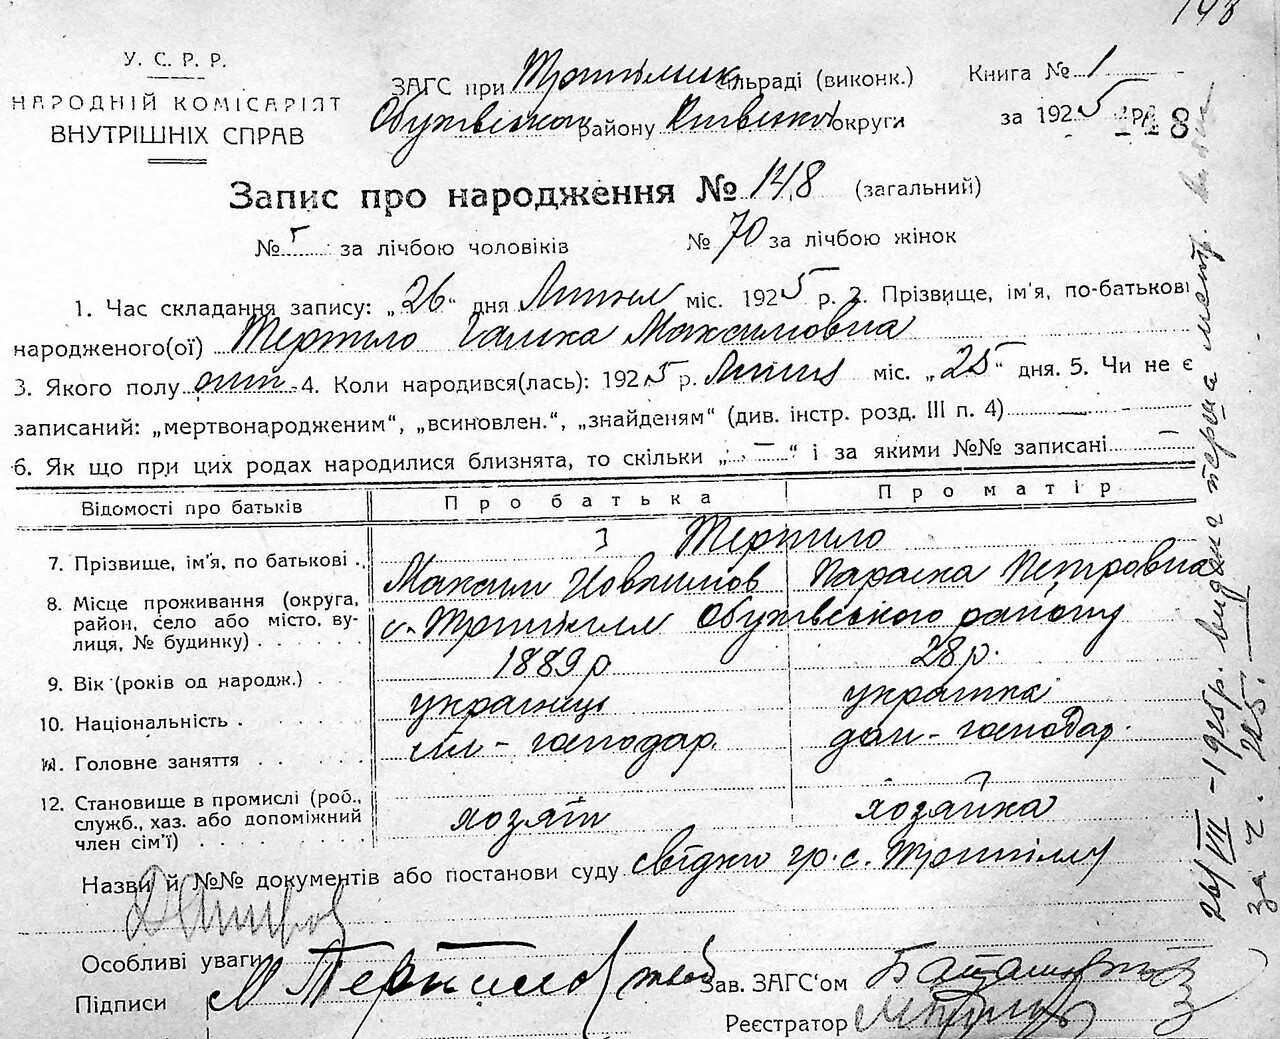 148
У. С. Р. Р.
НАРОДНІЙ КОМІСАРІЯТ
ВНУТРІШНІХ СПРАВ
ЗАГС при Трипільск. сільраді (виконк.)
Обухівського району Київської округи
Книга № 1
за 1925 р.
148
Запис про народження № 148 (загальний)
№ за лічбою чоловіків № 70 за лічбою жінок
1. Час складання запису: „26“ дня Липня міс. 1925 р. 2. Прізвище, ім'я, по-батькові
народженого(ої) Тертило Галька Максимовна
3. Якого полу 4. Коли народився(лась): 1925 р. Липня міс. „25“ дня. 5. Чи не є
записаний: „мертвонародженим“, „всиновлен.“, „знайденям“ (див. інстр. розд. III п. 4)
6. Як що при цих родах народилися близнята, то скільки „ — “ і за якими №№ записані —
Відомості про батьків Про батька Про матір
7. Прізвище, ім'я, по батькові Тертило
Максим Параска Петровна
8. Місце проживання (округа, район, село або місто, вулиця, № будинку) с. Трипілля Обухівського району
9. Вік (років од народж.) 1889 р 28 р.
10. Національність українець українка
11. Головне заняття господар. дом-господар.
12. Становище в промислі (роб., служб., хаз. або допоміжний член сім'ї) хозяїн хозяйка
Назви й №№ документів або постанови суду свідки гр. с. Трипілля
Особливі уваги
Підписи М Тертило Зав. ЗАГС'ом
Реєстратор
26/VII-1925р. видана перша метр. випись
за ч. 225.